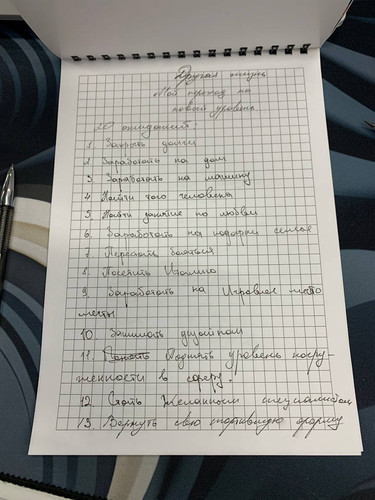 Другая жизнь
Мой приход на
новый уровень
20 ожиданий:
1. Закрыть долги
2 Заработать на дом
3 Заработать на машину
4 Найти того человека
5 Найти занятие по любви
6. Заработать на подарки семье
7 Перестать бояться
8. Посетить Италию
9. Заработать на Игровое место
мечты
10 Занимать
11. Поднять уровень погру-
женности в сферу.
12. Стать Желанным специалистом
13. Вернуть свою спортивную форму